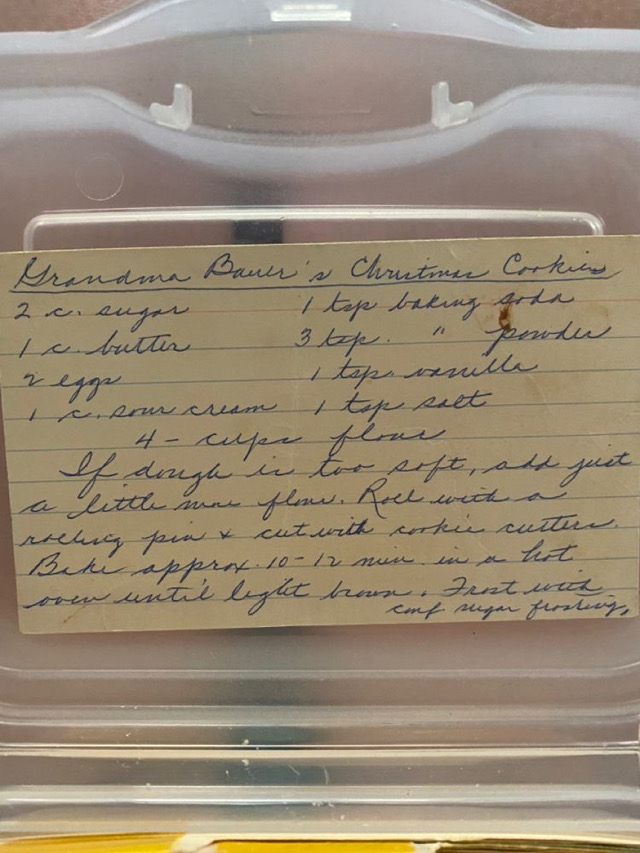 Grandma Bauer's Christmas Cookies
2 c. sugar 1 tsp baking soda
1 c. butter 3 tsp. " powder
2 eggs 1 tsp. vanilla
1 c. sour cream 1 tsp salt
4 - cups flour
If dough is too soft, add just
a little more flour. Roll with a
rolling pin & cut with cookie cutters.
Bake approx. 10-12 min. in a hot
oven until light brown. Frost with
conf sugar frosting.